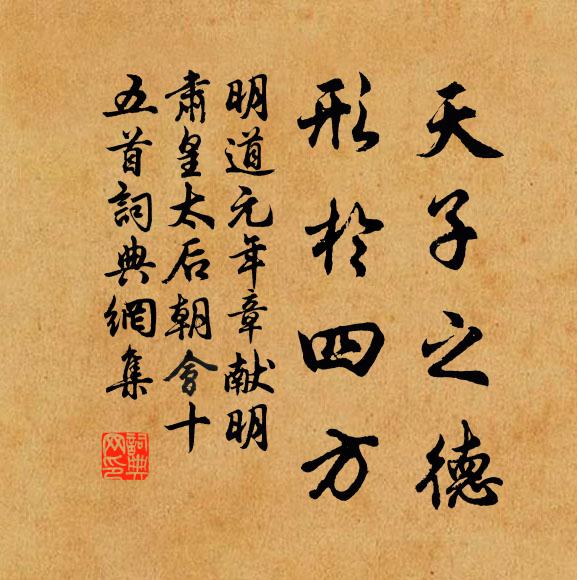 天子之德
形於四方
明道元年章献明
肅皇太后朝會十
五首詞典網集
詞典
网印